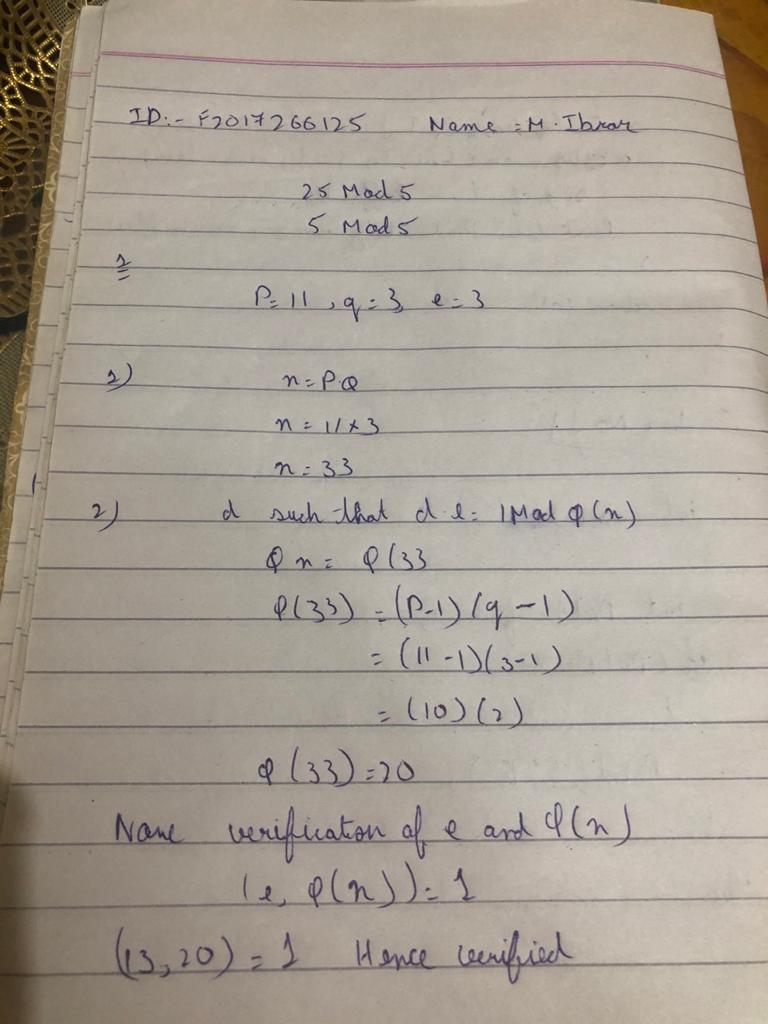 ID:- F2017266125 Name = M. Ibrar
25 Mod 5
5 Mod 5
1
P= 11 , q = 3, e = 3
1) n = P.Q
n = 11 x 3
n = 33
2) d such that d.e = 1 Mod φ(n)
φ n = φ(33
φ(33) = (P-1) (q - 1)
= (11 -1)(3-1)
= (10) (2)
φ (33) = 20
verification of e and φ(n)
(e, φ(n)) = 1
(13, 20) = 1 Hence verified